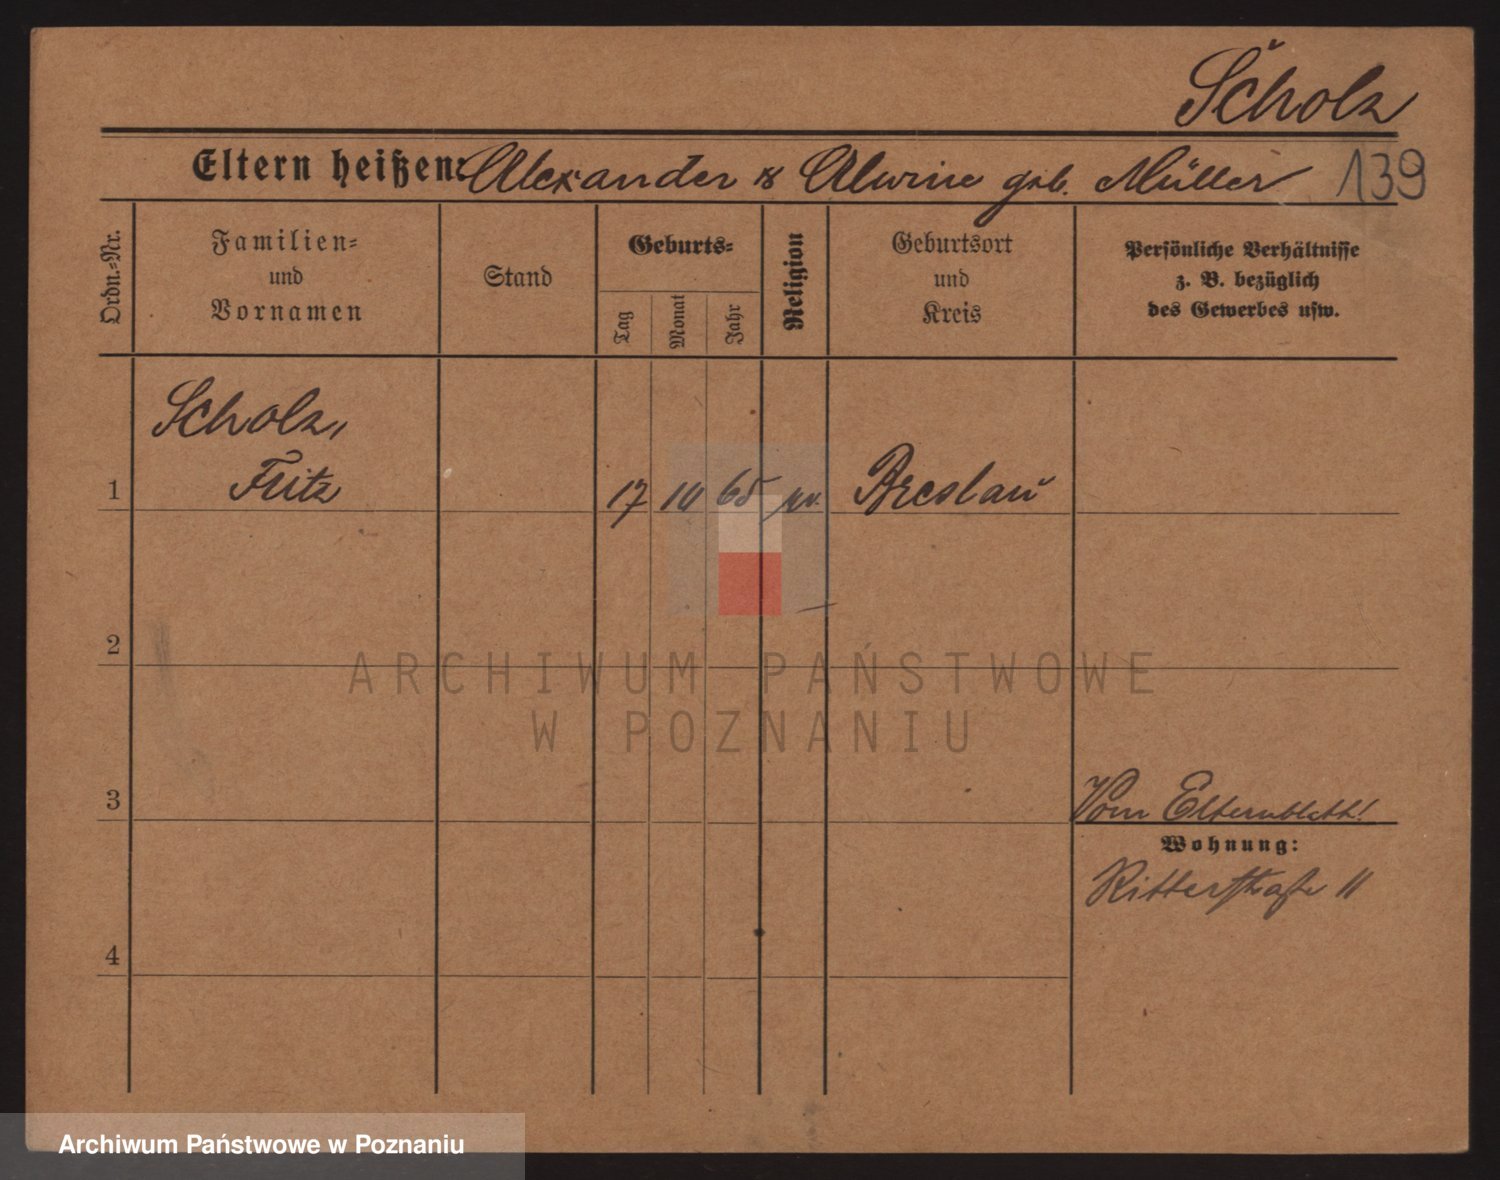 Scholz
Eltern heißen: Alexander & Alwine geb. Müller 139
Ordn.-Nr.
Familien-
und
Vornamen
Stand
Geburts-
Tag
Monat
Jahr
Religion
Geburtsort
und
Kreis
Persönliche Verhältnisse
z. B. bezüglich
des Gewerbes usw.
Scholz,
1 Fritz 17 10 65 Breslau
2
3
4
Vom Elternblatt!
Wohnung:
Ritterstraße 11
ARCHIWUM PAŃSTWOWE
W POZNANIU
Archiwum Państwowe w Poznaniu